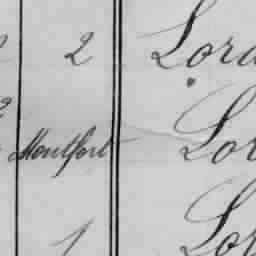 2 Lord
Montfort Lo
1 Lo